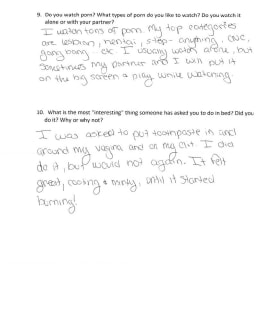 9. Do you watch porn? What types of porn do you like to watch? Do you watch it
alone or with your partner?
I watch tons of porn. My top categories
are lesbian, hentai, step-anything, CNC,
gang bang etc. I usually watch alone, but
sometimes my partner and I will put it
on the big screen & play while watching.
10. What is the most "interesting" thing someone has asked you to do in bed? Did you
do it? Why or why not?
I was asked to put toothpaste in and
around my vagina and on my clit. I did
do it, but would not again. It felt
great, cooling & minty, until it started
burning!